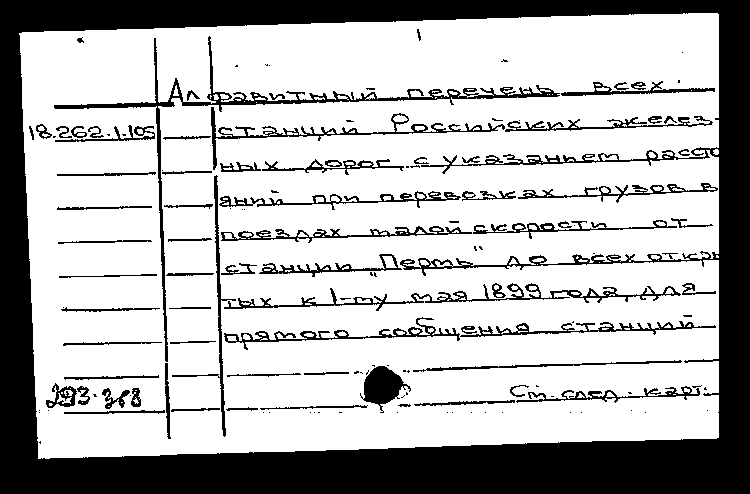 Алфавитный перечень всех
18.262.1.105 станций Российских желез-
ных дорог, с указанием рассто
яний при перевозках грузов в
поездах малой скорости от
станции „Пермь" до всех откры
тых к 1-му мая 1899 года, для
прямого сообщения станций
293.368 См. след. карт.